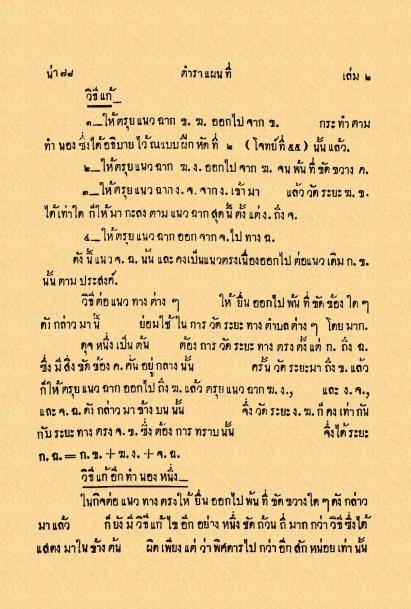 น่า ๗๘ ตำราแผนที่ เล่ม ๒
วิธีแก้_
๑_ให้ตรุยแนวฉาก ข. ฆ. ออกไปจาก ข. กระทำตาม
ทำนองซึ่งได้อธิบายไว้ณแบบฝึกหัดที่ ๒ (โจทย์ที่ ๕๕) นั้นแล้ว.
๒_ให้ตรุยแนวฉาก ฆ. ง. ออกไปจาก ฆ. จนพ้นที่ขัดขวาง ค.
๓_ให้ตรุยแนวฉาก ง. จ. จาก ง. เข้ามา แล้ววัดระยะ ฆ. ข.
ได้เท่าใด ก็ให้มากะลงตามแนวฉากสุดนี้ ตั้งแต่ ง. ถึง จ.
๔_ให้ตรุยแนวฉากออกจาก จ. ไปทาง ฉ.
ดังนี้แนว จ. ฉ. นั้น และคงเป็นแนวตรงเนื่องออกไปต่อแนวเดิม ก. ข.
นั้นตามประสงค์.
วิธีต่อแนวทางต่าง ๆ ให้ยื่นออกไปพ้นที่ขัดข้องใด ๆ
ดังกล่าวมานี้ ย่อมใช้ในการวัดระยะทางตำบลต่าง ๆ โดยมาก.
ดุจหนึ่งเป็นต้น ต้องการวัดระยะทางตรงตั้งแต่ ก. ถึง ฉ.
ซึ่งมีสิ่งขัดข้อง ค. คั่นอยู่กลางนั้น ครั้นวัดระยะมาถึง ข. แล้ว
ก็ให้ตรุยแนวฉากออกไปถึง ฆ. แล้วตรุยแนวฉาก ฆ. ง., และ ง. จ.,
และ จ. ฉ. ดังกล่าวมาข้างบนนั้น จึ่งวัดระยะ ง. ฆ. ก็คงเท่ากัน
กับระยะทางตรง จ. ข. ซึ่งต้องการทราบนั้น จึ่งได้ระยะ
ก. ฉ. = ก. ข. + ฆ. ง. + จ. ฉ.
วิธีแก้อีกทำนองหนึ่ง_
ในกิจต่อแนวทางตรงให้ยื่นออกไปพ้นที่ขัดขวางใด ๆ ดังกล่าว
มาแล้ว ก็ยังมีวิธีแก้ไขอีกอย่างหนึ่งชัดถ้วนถี่มากกว่าวิธีซึ่งได้
แสดงมาในข้างต้น ผิดเพียงแต่ว่าพิศดารไปกว่าอีกสักหน่อยเท่านั้น